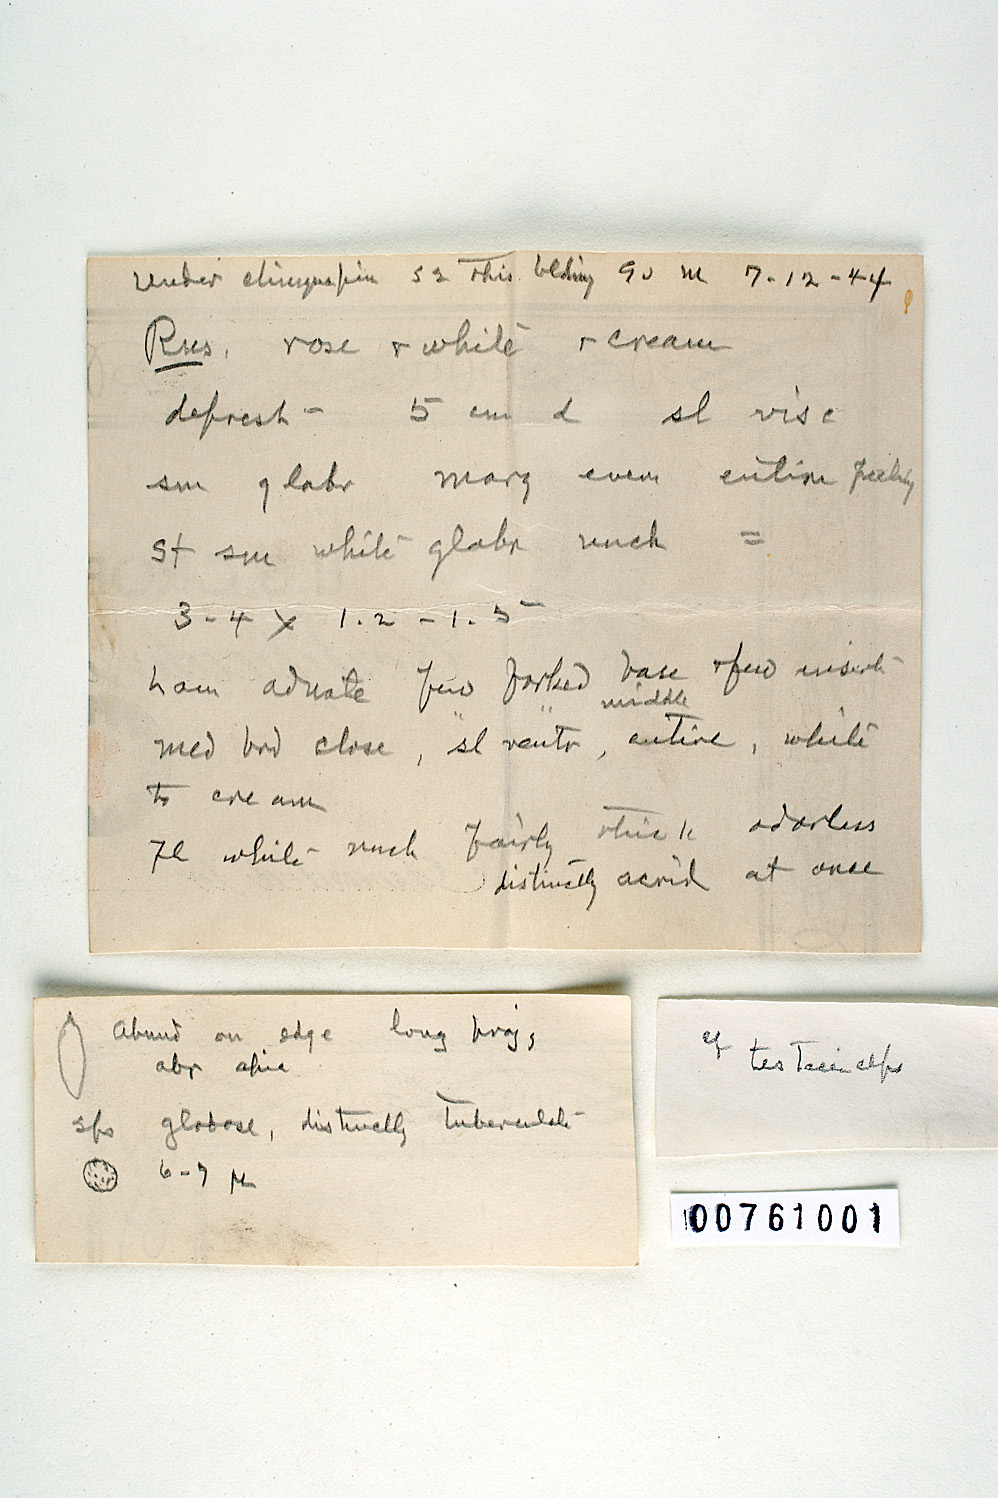 Under chinquapin S2 this blding 90 m 7-12-44
Rus. rose & white & cream
defresh - 5 cm d sl visc
sm glabr marg even entire peeling
St sm white glabr unch =
3-4 x 1.2-1.5
Lam adnate few forked base & few insert
" " middle
med brd close, sl ventr, entire, white
to cream
Fl white unch fairly thick odorless
distinctly acrid at once
Abund on edge long proj,
obv apic
sps globose, distinctly tuberculate
6-7 µ
cf testaceiceps
00761001